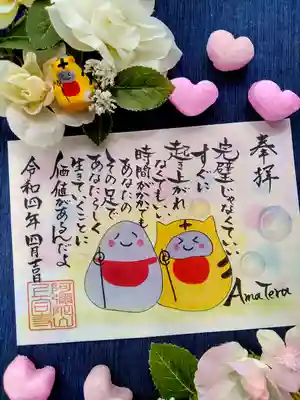 奉拝
完璧じゃなくていい
すぐに
起き上がれ
なくてもいい
時間がかかても
あなたの
その足で
あなたらしく
生きていくことに
価値があるんだよ
令和四年四月吉日
AmaTera